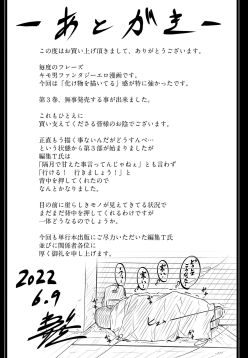 ーあとがきー
この度はお買い上げ頂きまして、ありがとうございます。
毎度のフレーズ
キモ男ファンタジーエロ漫画です。
今回は「化け物を描いてる」感が特に強かったです。
第３巻、無事発売する事が出来ました。
これもひとえに
買い支えてくださる皆様のお陰でございます。
正直もう描く事ないんだがどうすんべ…
という状態から第３部が始まりましたが
編集Ｔ氏は
「隔月で甘えた事言ってんじゃねぇ」とも言わず
「行ける！ 行きましょう！」と
背中を押してくれたので
なんとかなりました。
目の前に崖らしきモノが見えてきてる状況で
まだまだ背中を押してくれるわけですが
一体どうなるのでしょうか。
今回も単行本出版にご尽力いただいた編集Ｔ氏
並びに関係者各位に
厚く御礼を申し上げます。
2022
6.9